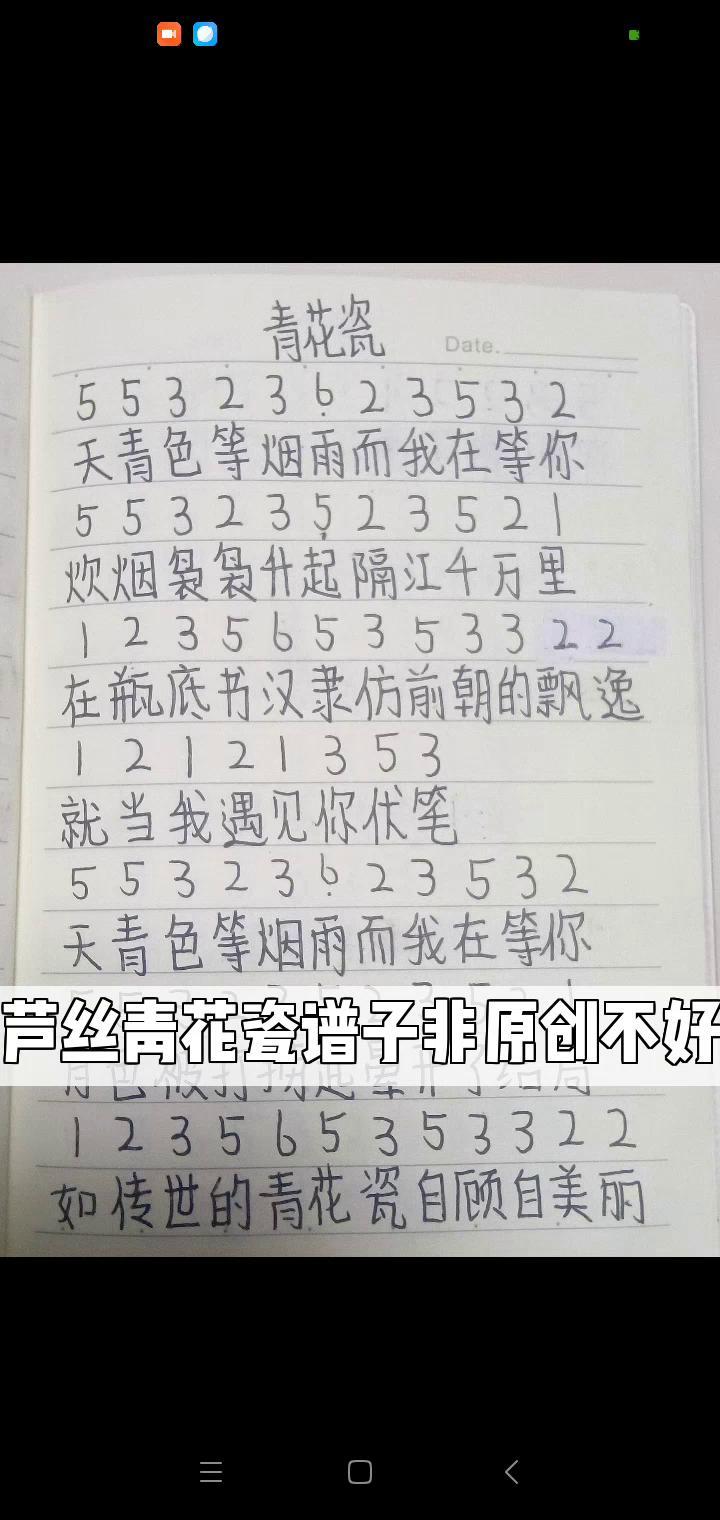 青花瓷
Date.
5 5 3 2 3 6̣ 2 3 5 3 2
天青色等烟雨而我在等你
5 5 3 2 3 5̣ 2 3 5 2 1
炊烟袅袅升起隔江千万里
1 2 3 5 6 5 3 5 3 3 2 2
在瓶底书汉隶仿前朝的飘逸
1 2 1 2 1 3 5 3
就当我遇见你伏笔
5 5 3 2 3 6̣ 2 3 5 3 2
天青色等烟雨而我在等你
芦丝青花瓷谱子非原创不好
1 2 3 5 6 5 3 5 3 3 2 2
如传世的青花瓷自顾自美丽